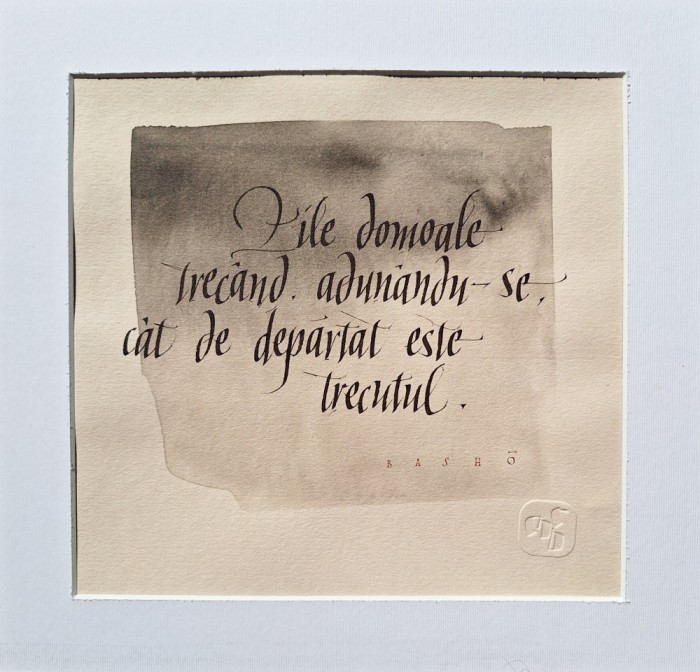 Zile domoale
trecând. adunându-se,
cât de depărtat este
trecutul.
BASHŌ